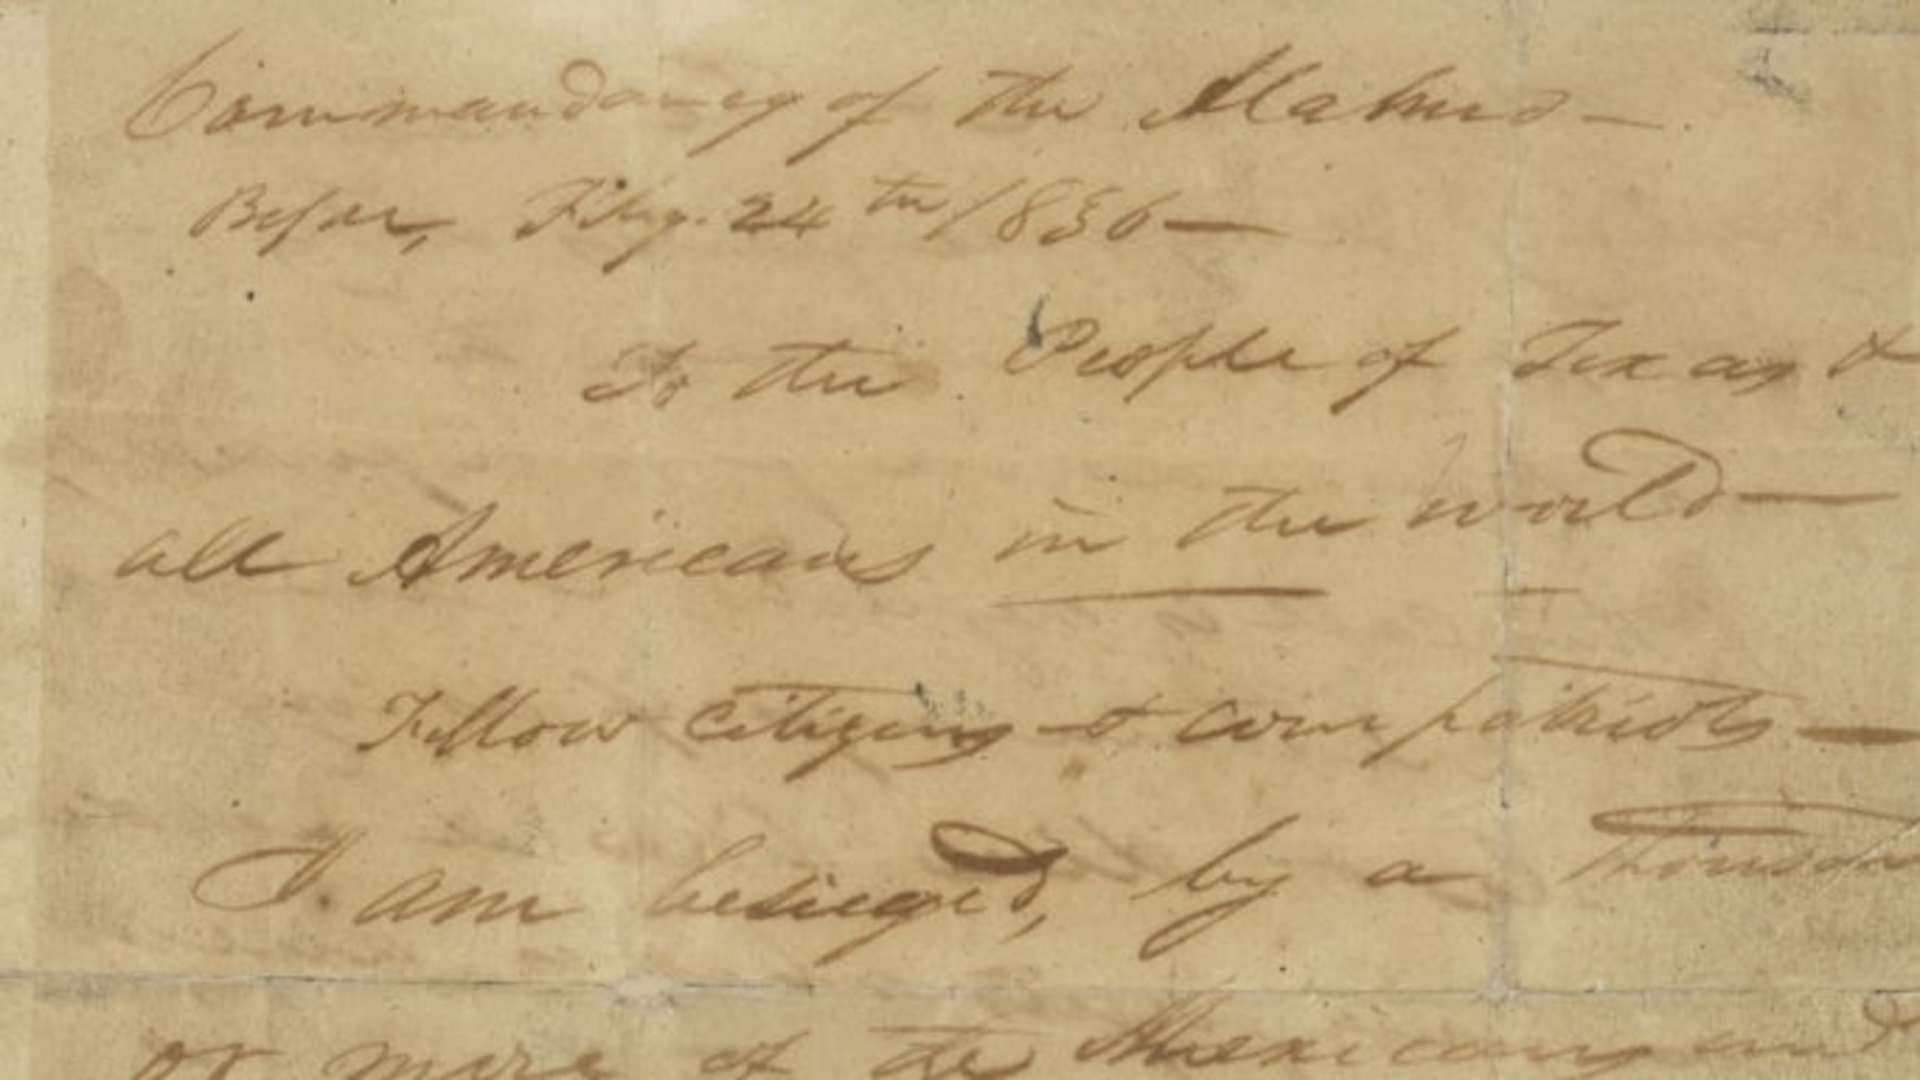 Commandancy of the Alamo—
Bejar, Feby. 24th 1836—
To the People of Texas &
all Americans in the world—
Fellow citizens & compatriots—
I am besieged, by a thousand
or more of the Mexicans and